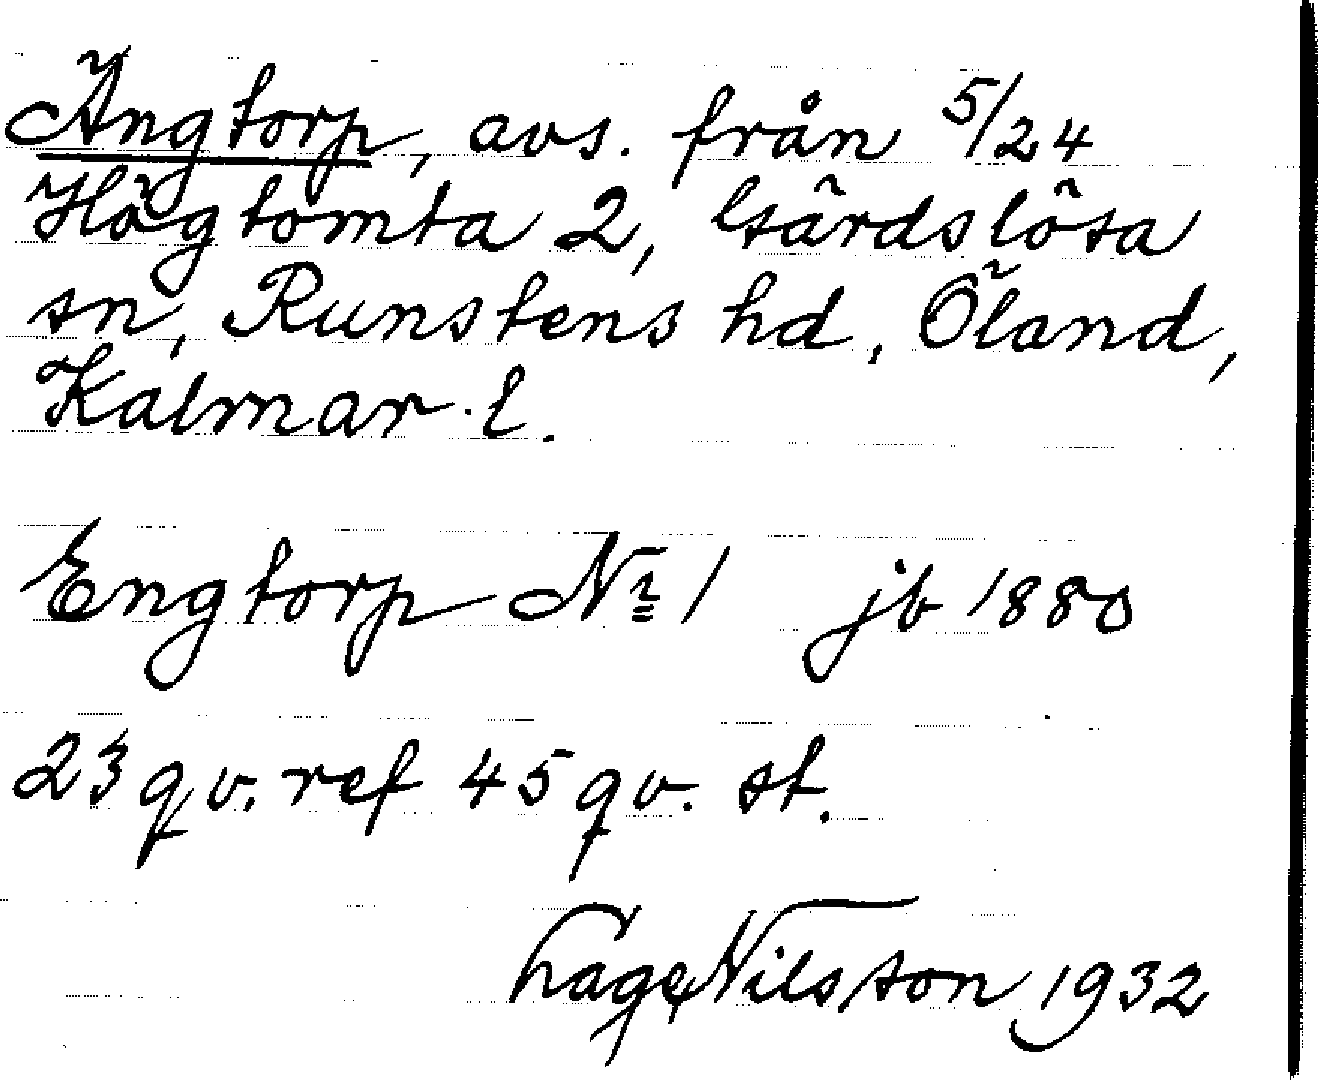 Ängtorp, avs. från 5/24
Högtomta 2, Gärdslösa
sn, Runstens hd, Öland,
Kalmar l.
Engtorp № 1 jb 1880
23 qv. ref 45 qv. st.
Hage Nilsson 1932